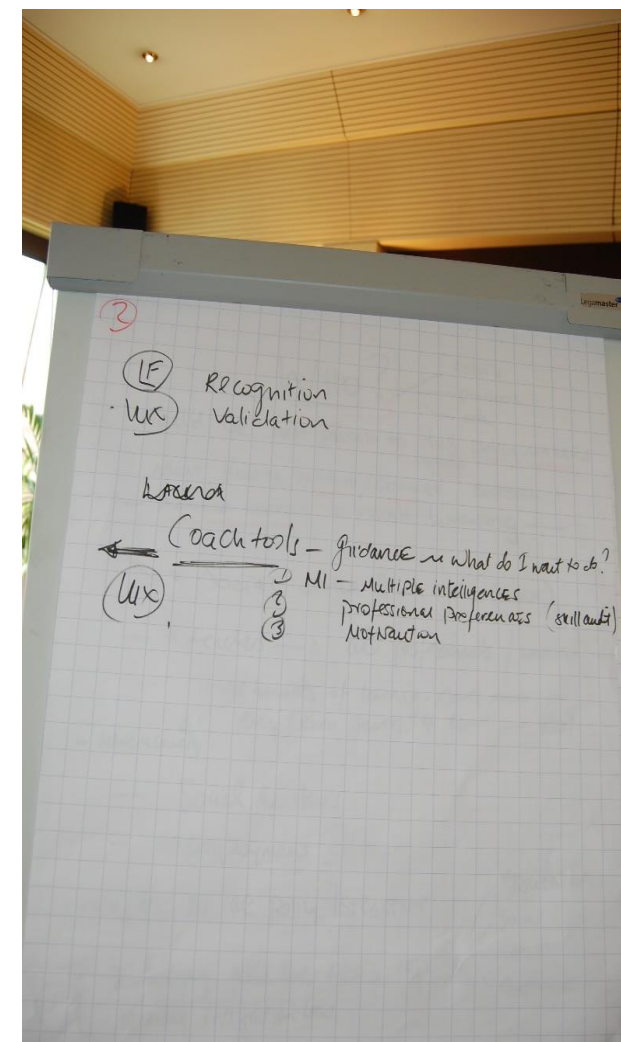 Legamaster
2
LF Recognition
Lux Validation
Coach tools – guidance ~ what do I want to do?
1) MI – Multiple intelligences
Lux 2 professional preferences (skill audit)
3 Motivation